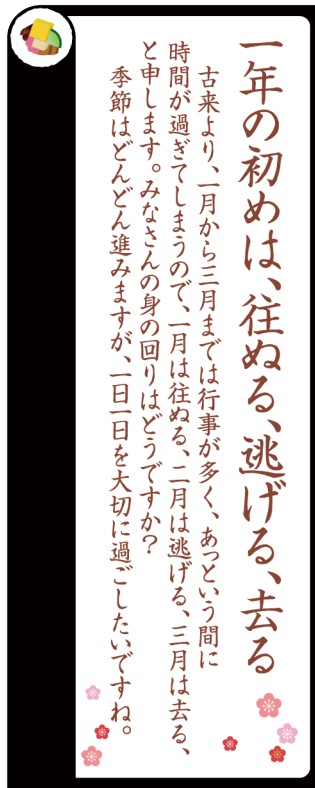 一年の初めは、往ぬる、逃げる、去る
古来より、一月から三月までは行事が多く、あっという間に
時間が過ぎてしまうので、一月は往ぬる、二月は逃げる、三月は去る、
と申します。みなさんの身の回りはどうですか？
季節はどんどん進みますが、一日一日を大切に過ごしたいですね。